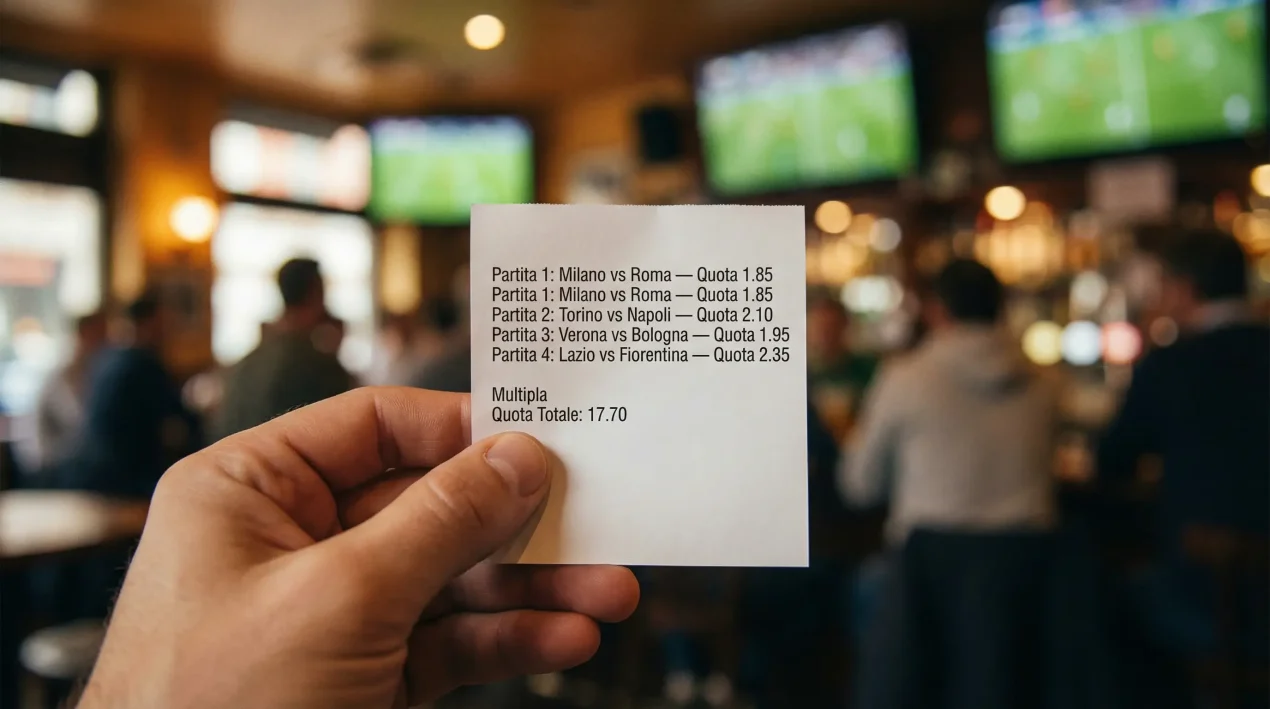 Partita 1: Milano vs Roma — Quota 1.85
Partita 1: Milano vs Roma — Quota 1.85
Partita 2: Torino vs Napoli — Quota 2.10
Partita 3: Verona vs Bologna — Quota 1.95
Partita 4: Lazio vs Fiorentina — Quota 2.35
Multipla
Quota Totale: 17.70